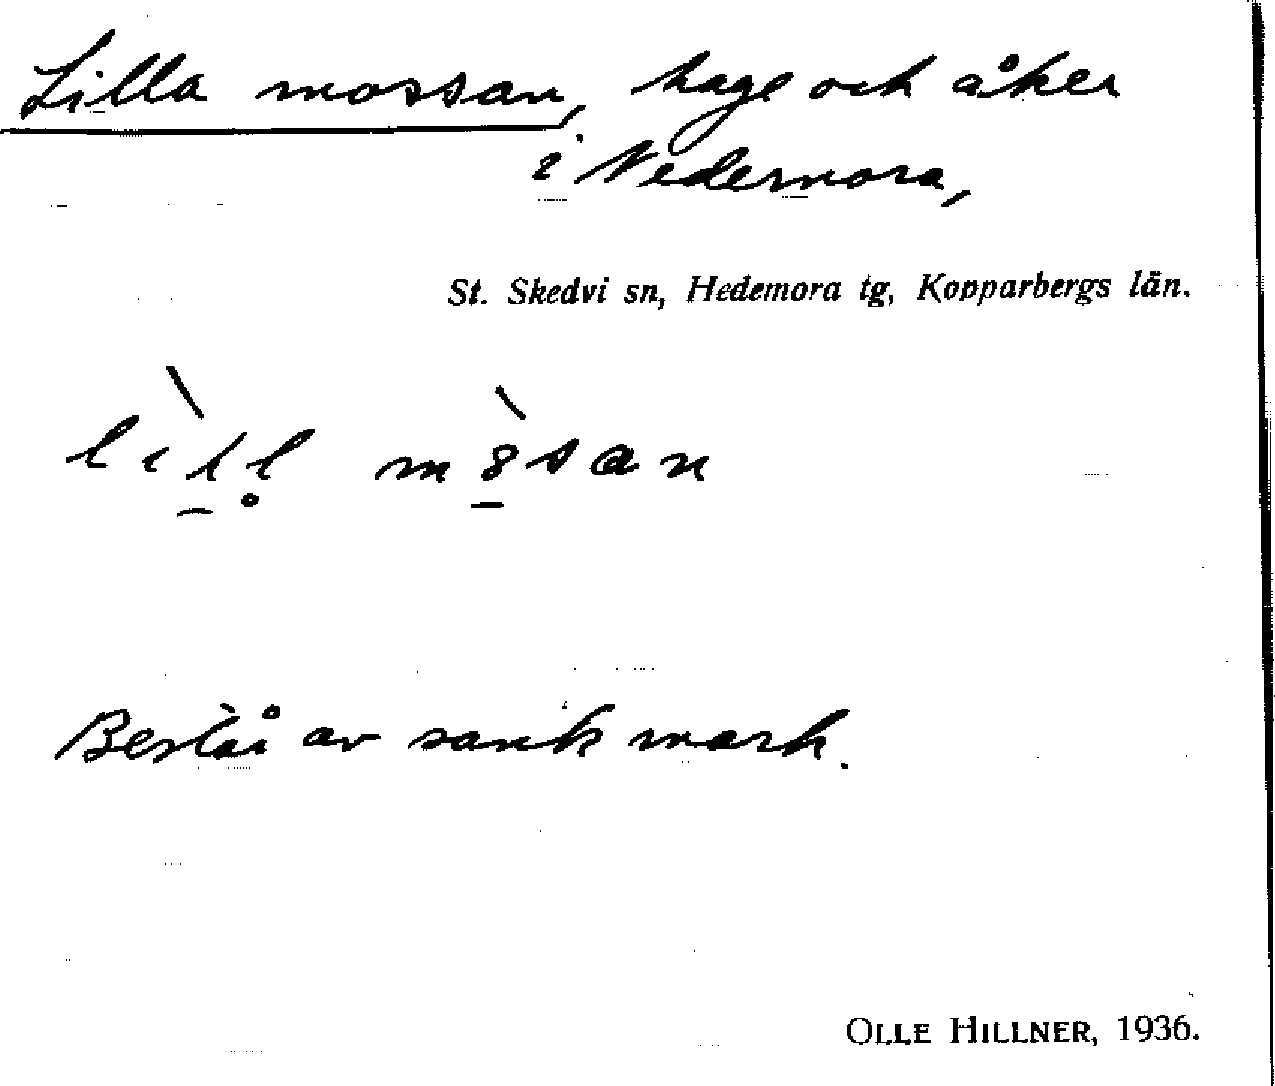 Lilla mossan, hage och åker
i Nedernora,
St. Skedvi sn, Hedemora tg, Kopparbergs län.
lìt̠l̥ m8̠̀san
Består av sank mark.
OLLE HILLNER, 1936.